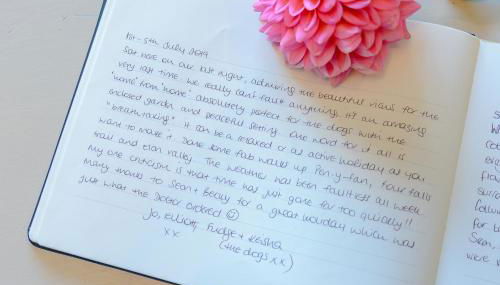 1st - 5th July 2019
Sat here on our last night, admiring the beautiful views for the
very last time. We really can't fault anything. It's an amazing
"home from home" absolutely perfect for the dogs with the
enclosed garden and peaceful setting. One word for it all is
"breathtaking". It can be a relaxed or an active holiday as you
want to make it. Done some fab walks up Pen-y-fan, four falls
trail and elan valley. The weather has been faultless all week
My one criticism is that time has just gone far too quickly!!
Many thanks to Sean + Becky for a great holiday which was
just what the doctor ordered ☺
Jo, Elliott, Fudge + Keisha
xx (the dogs xx)